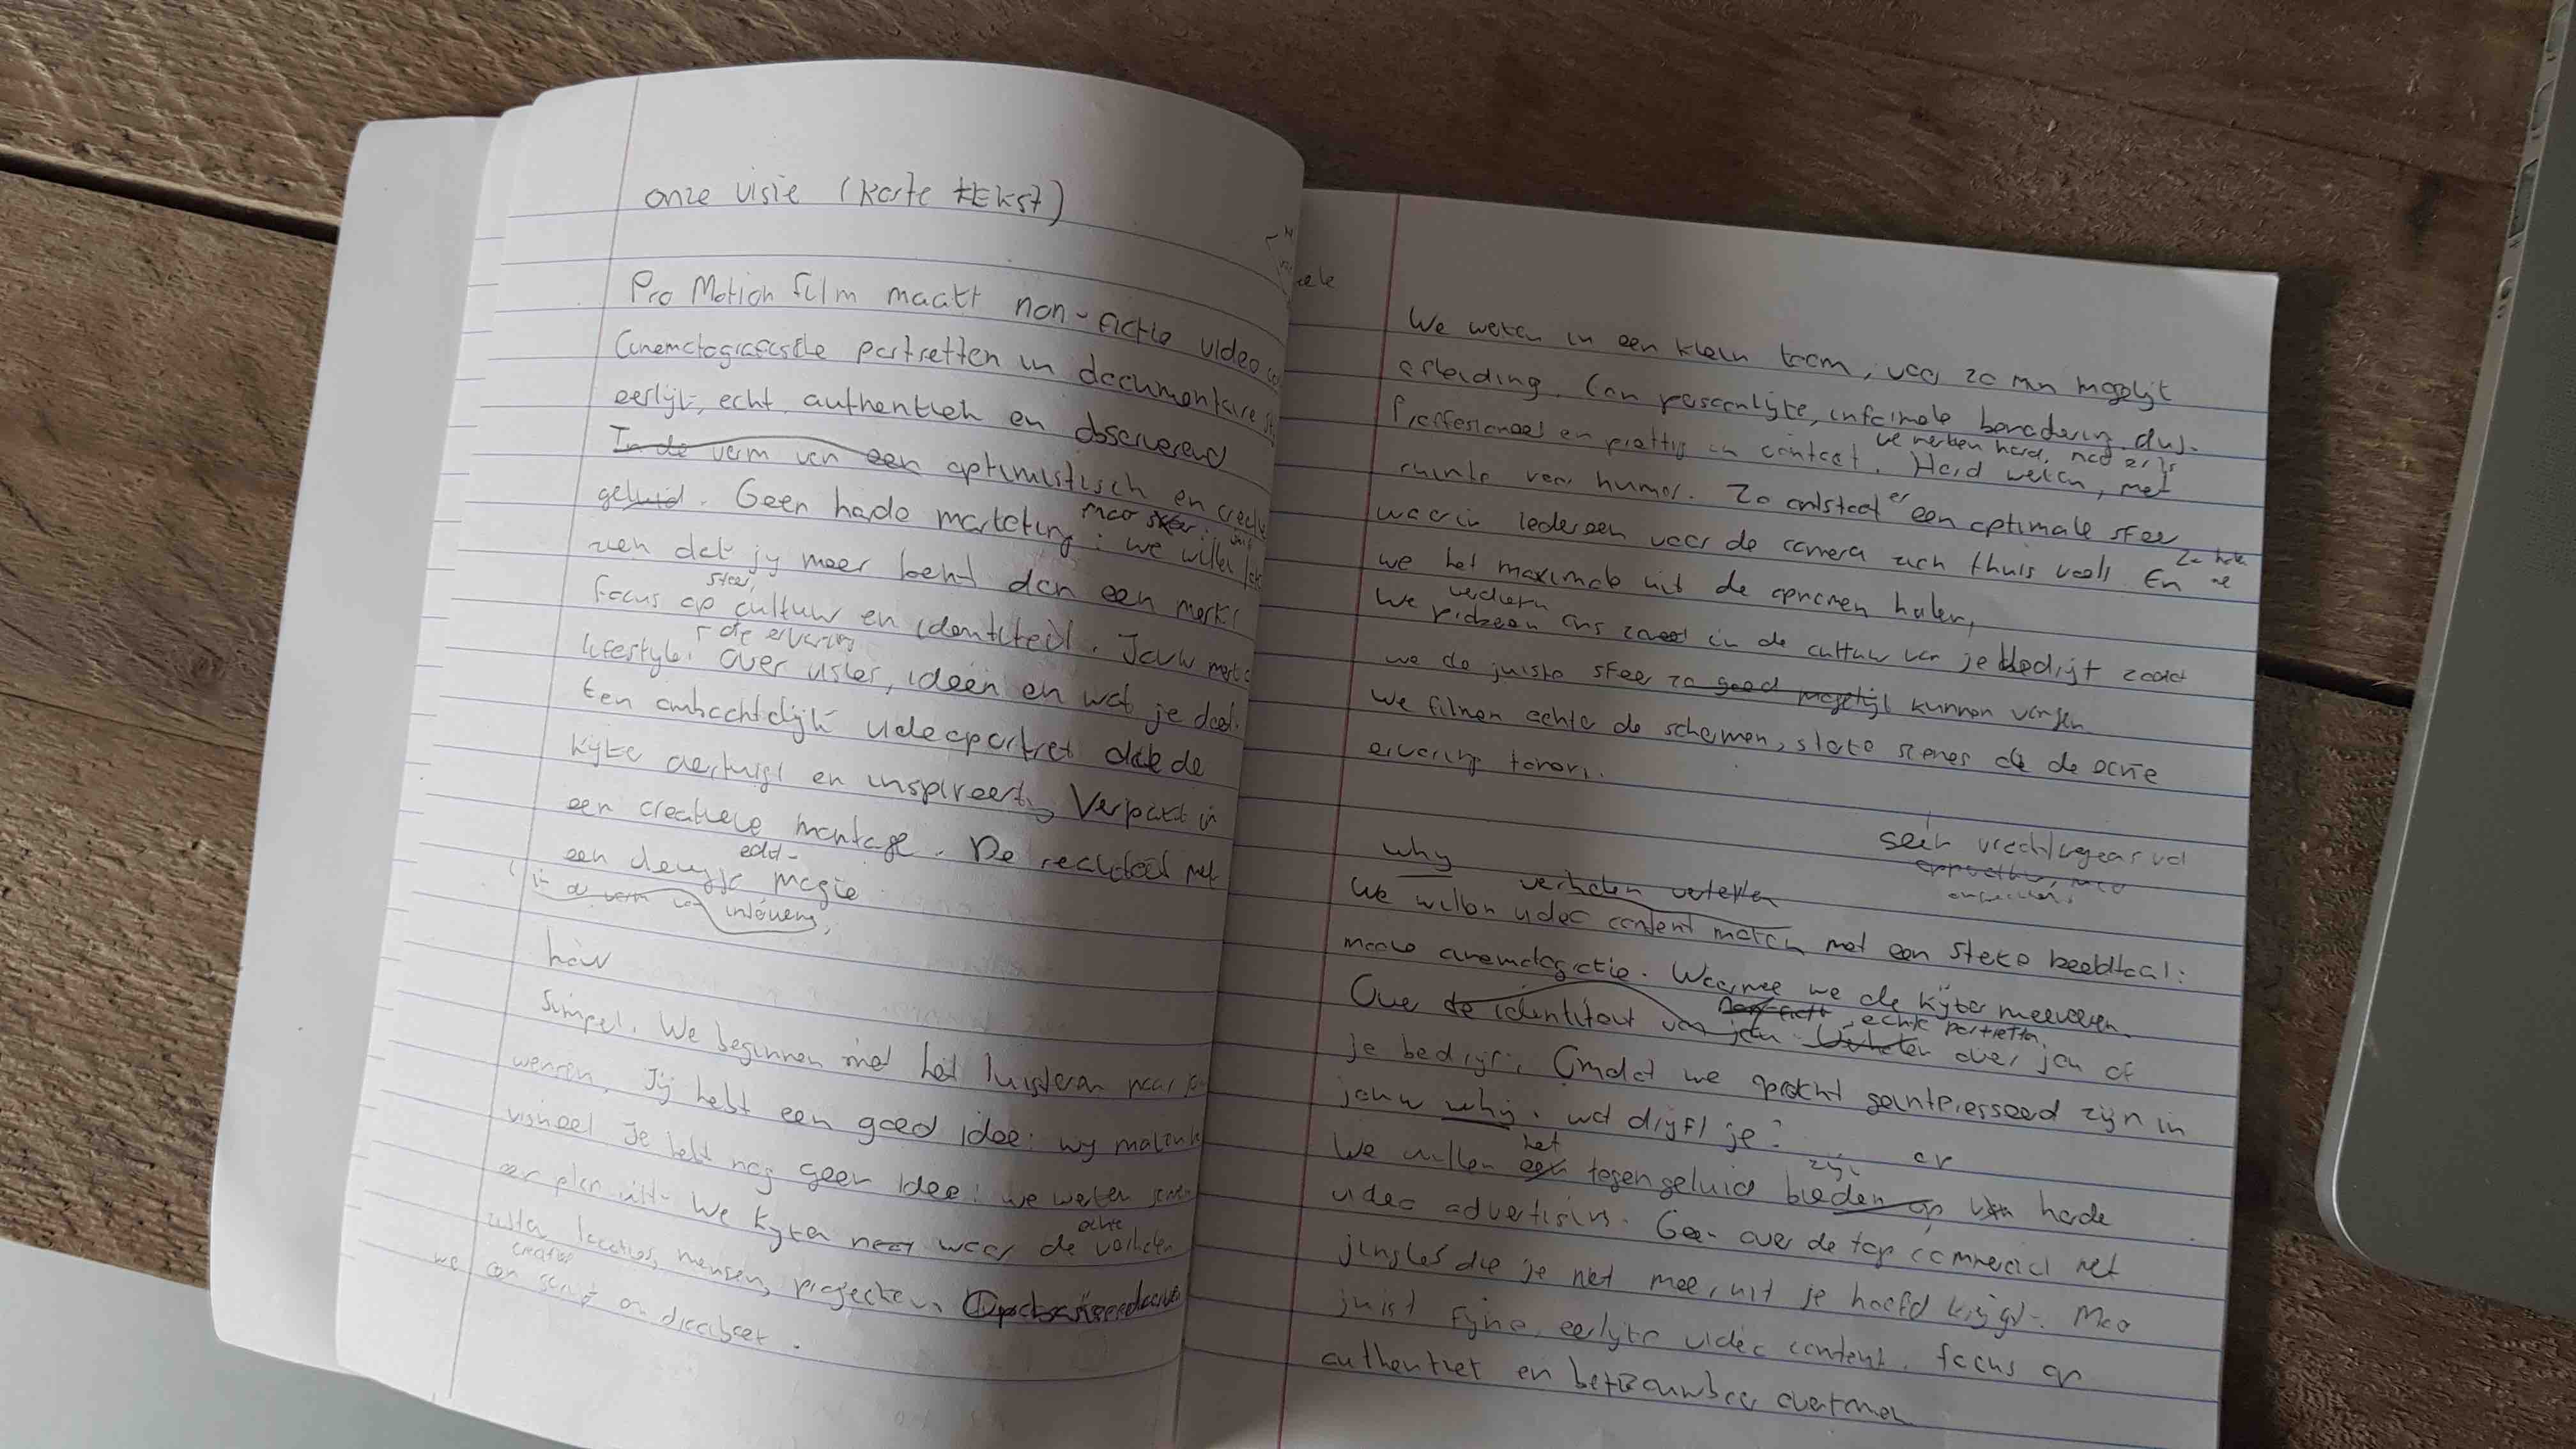 onze visie (korte tEkst)
Pro Motion film maakt non-fictie video
Cinematografische portretten in documentaire
eerlijk, echt, authentiek en observerend
In de vorm van een optimistisch en
geluid. Geen harde marketing: we willen
maar
zien dat jij meer bent dan een merk!
sfeer,
focus op cultuur en identiteit. Jouw
de ervaring
lifestyle. over visies, ideeën en wat je doet.
Een ambachtelijk videoportret dat de
kijker overtuigt en inspireert, Verpakt in
een creatieve montage. De realiteit met
echt-
een deuge magie
in de vorm van
how
Simpel. We beginnen met het luisteren naar
wensen. Jij hebt een goed idee: wij maken
visueel Je hebt nog geen idee: we werken
een plan uit. We kijken naar waar de verhalen
echte
zitten locaties, mensen, projecten.
creatief
we een script en draaiboek.
We werken in een klein team, voor zo min mogelijk
afleiding. Een persoonlijke, informele benadering dus.
Proffesioneel en prettig in contact. Hard werken, met
we werken hard, maar er is
ruimte voor humor. Zo ontstaat er een optimale sfeer
waarin iedereen voor de camera zich thuis voelt. En
Zo halen we
we het maximale uit de opnamen halen,
verdiepen
We ons in de cultuur van je bedrijf zodat
we de juiste sfeer zo goed mogelijk kunnen vangen
We filmen achter de schermen, sterke scenes die de echte
ervaring tonen.
why
verhalen vertellen
We willen video content maken met een sterke beeldtaal:
mooie cinematografie. Waarmee we de kijker meevoeren
echte portretten
Over de identiteit van jou. Verhalen over jou of
je bedrijf. Omdat we oprecht geinteresseerd zijn in
jouw why. wat drijft je?
het zijn op
We willen een tegengeluid bieden op harde
video advertising. Geen over de top commercial met
jingles die je niet meer uit je hoofd krijgt. Maar
juist fijne, eerlijke video content. focus op
authentiek en betrouwbaar overkomen